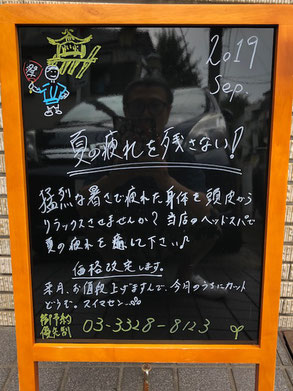 2019
Sep.
祭
夏の疲れを残さない!
猛烈な暑さで疲れた身体を頭皮から
リラックスさせませんか?当店のヘッドスパで
夏の疲れを癒して下さい♪
価格改定します。
来月、お値段上げますんで、今月のうちにカット
どうぞ。スイマセン…
御予約
優先制 03-3328-8123